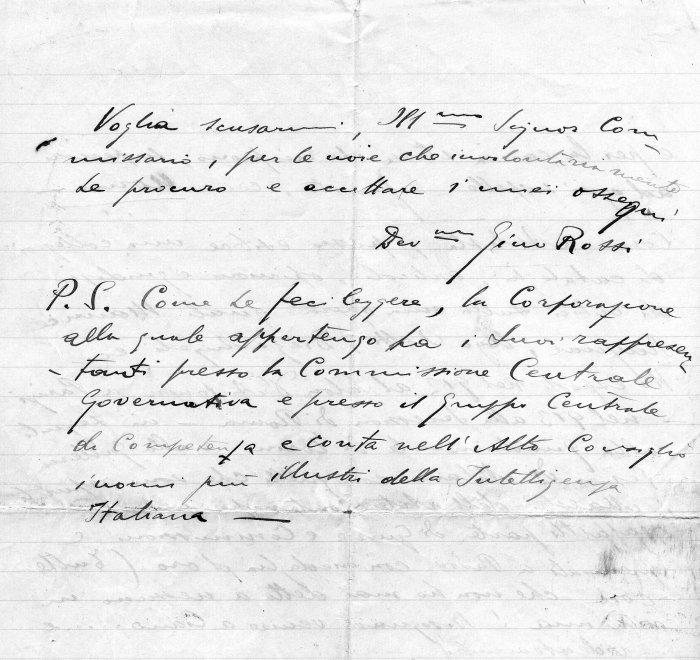 Voglia scusarmi, Ill mo Signor Com-
missario, per le noie che involontariamente
Le procuro e accettare i miei ossequi
Dev mo Gino Rossi
P. S. Come Le feci leggere, la Corporazione
alla quale appartengo ha i suoi rappresen
- tanti presso la Commissione Centrale
Governativa e presso il Gruppo Centrale
di Competenza e conta nell'Alto Consiglio
i nomi più illustri della Intelligenza
Italiana —